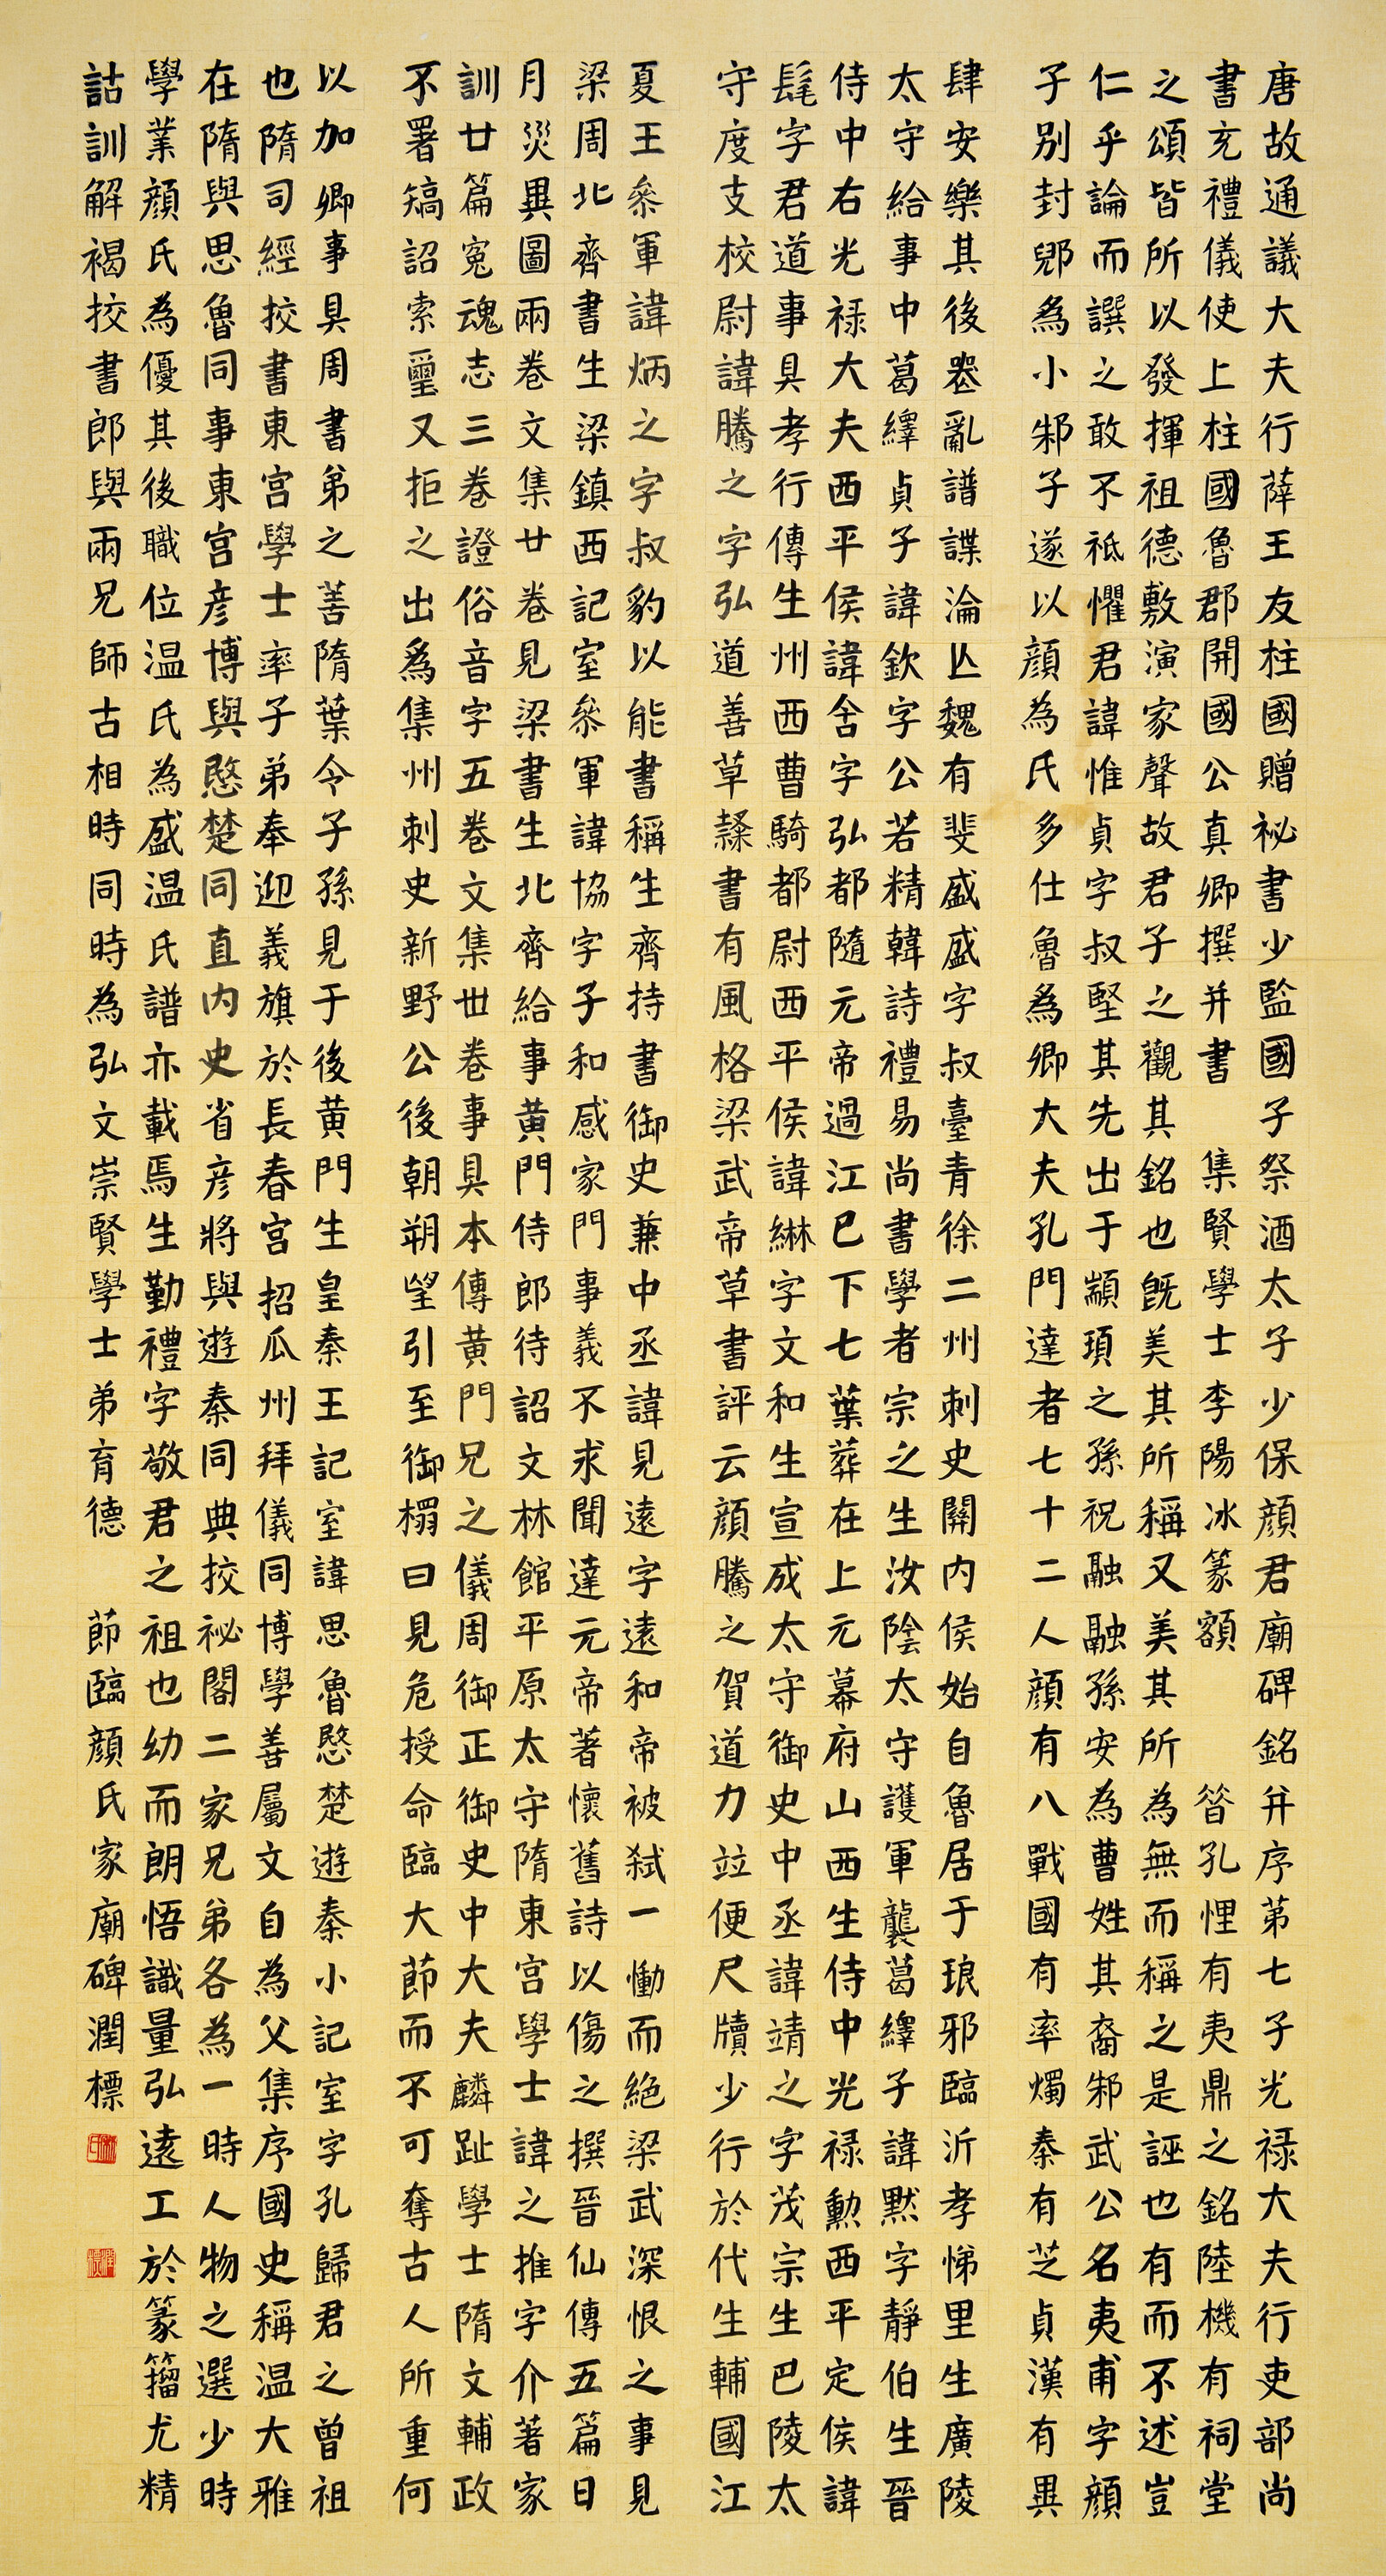 唐故通議大夫行薛王友柱國贈祕書少監國子祭酒太子少保顏君廟碑銘并序第七子光祿大夫行吏部尚
書充禮儀使上柱國魯郡開國公真卿撰并書集賢學士李陽冰篆額昝孔悝有夷鼎之銘陸機有祠堂
之頌皆所以發揮祖德敷演家聲故君子之觀其銘也既美其所稱又美其所為無而稱之是誣也有而不述豈
仁乎論而譔之敢不祗懼君諱惟貞字叔堅其先出于顓頊之孫祝融融孫安為曹姓其裔邾武公名夷甫字顏
子別封郳為小邾子遂以顏為氏多仕魯為卿大夫孔門達者七十二人顏有八戰國有率燭秦有芝貞漢有異
肆安樂其後喪亂譜諜淪亾魏有斐盛盛字叔臺青徐二州刺史關內侯始自魯居于琅邪臨沂孝悌里生廣陵
太守給事中葛繹貞子諱欽字公若精韓詩禮易尚書學者宗之生汝陰太守護軍襲葛繹子諱默字靜伯生晉
侍中右光祿大夫西平侯諱含字弘都隨元帝過江已下七葉葬在上元幕府山西生侍中光祿勳西平定侯諱
髦字君道事具孝行傳生州西曹騎都尉西平侯諱綝字文和生宣成太守御史中丞諱靖之字茂宗生巴陵太
守度支校尉諱騰之字弘道善草隸書有風格梁武帝草書評云顏騰之賀道力竝便尺牘少行於代生輔國江
夏王參軍諱炳之字叔豹以能書稱生齊持書御史兼中丞諱見遠字遠和帝被弒一慟而絕梁武深恨之事見
梁周北齊書生梁鎮西記室參軍諱協字子和感家門事義不求聞達元帝著懷舊詩以傷之撰晉仙傳五篇日
月災異圖兩卷文集廿卷見梁書生北齊給事黃門侍郎待詔文林館平原太守隋東宮學士諱之推字介著家
訓廿篇冤魂志三卷證俗音字五卷文集卅卷事具本傳黃門兄之儀周御正御史中大夫麟趾學士隋文輔政
不署矯詔索璽又拒之出為集州刺史新野公後朝朔望引至御榻曰見危授命臨大節而不可奪古人所重何
以加卿事具周書弟之善隋葉令子孫見于後黃門生皇秦王記室諱思魯愍楚遊秦小記室字孔歸君之曾祖
也隋司經挍書東宮學士率子弟奉迎義旗於長春宮招瓜州拜儀同博學善屬文自為父集序國史稱溫大雅
在隋與思魯同事東宮彥博與愍楚同直內史省彥將與遊秦同典挍祕閣二家兄弟各為一時人物之選少時
學業顏氏為優其後職位溫氏為盛溫氏譜亦載焉生勤禮字敬君之祖也幼而朗悟識量弘遠工於篆籀尤精
詁訓解褐挍書郎與兩兄師古相時同時為弘文崇賢學士弟育德節臨顏氏家廟碑潤標